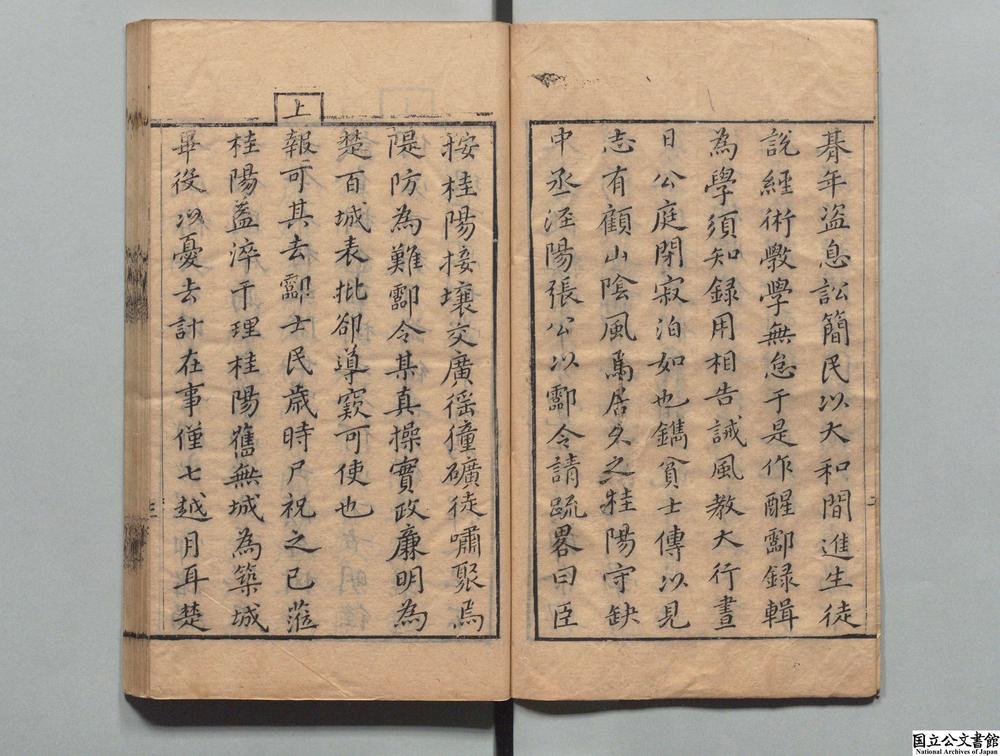 朞年盗息訟簡民以大和間進生徒
說經術斆學無怠于是作醒酃録輯
為學須知録用相告誡風教大行晝
日公庭閉寂泊如也鐫貧士傳以見
志有顧山陰風焉居久之桂陽守缺
中丞涇陽張公以酃令請疏畧曰臣
二
按桂陽接壤交廣徭獞礦徒嘯聚為
隄防為難酃令某真操實政廉明為
楚百城表批郤導窽可使也
上
報可其去酃士民歳時尸祝之已蒞
桂陽葢淬于理桂陽舊無城為築城
畢役以憂去計在事僅七越月耳楚
三
国立公文書館
National Archives of Japan